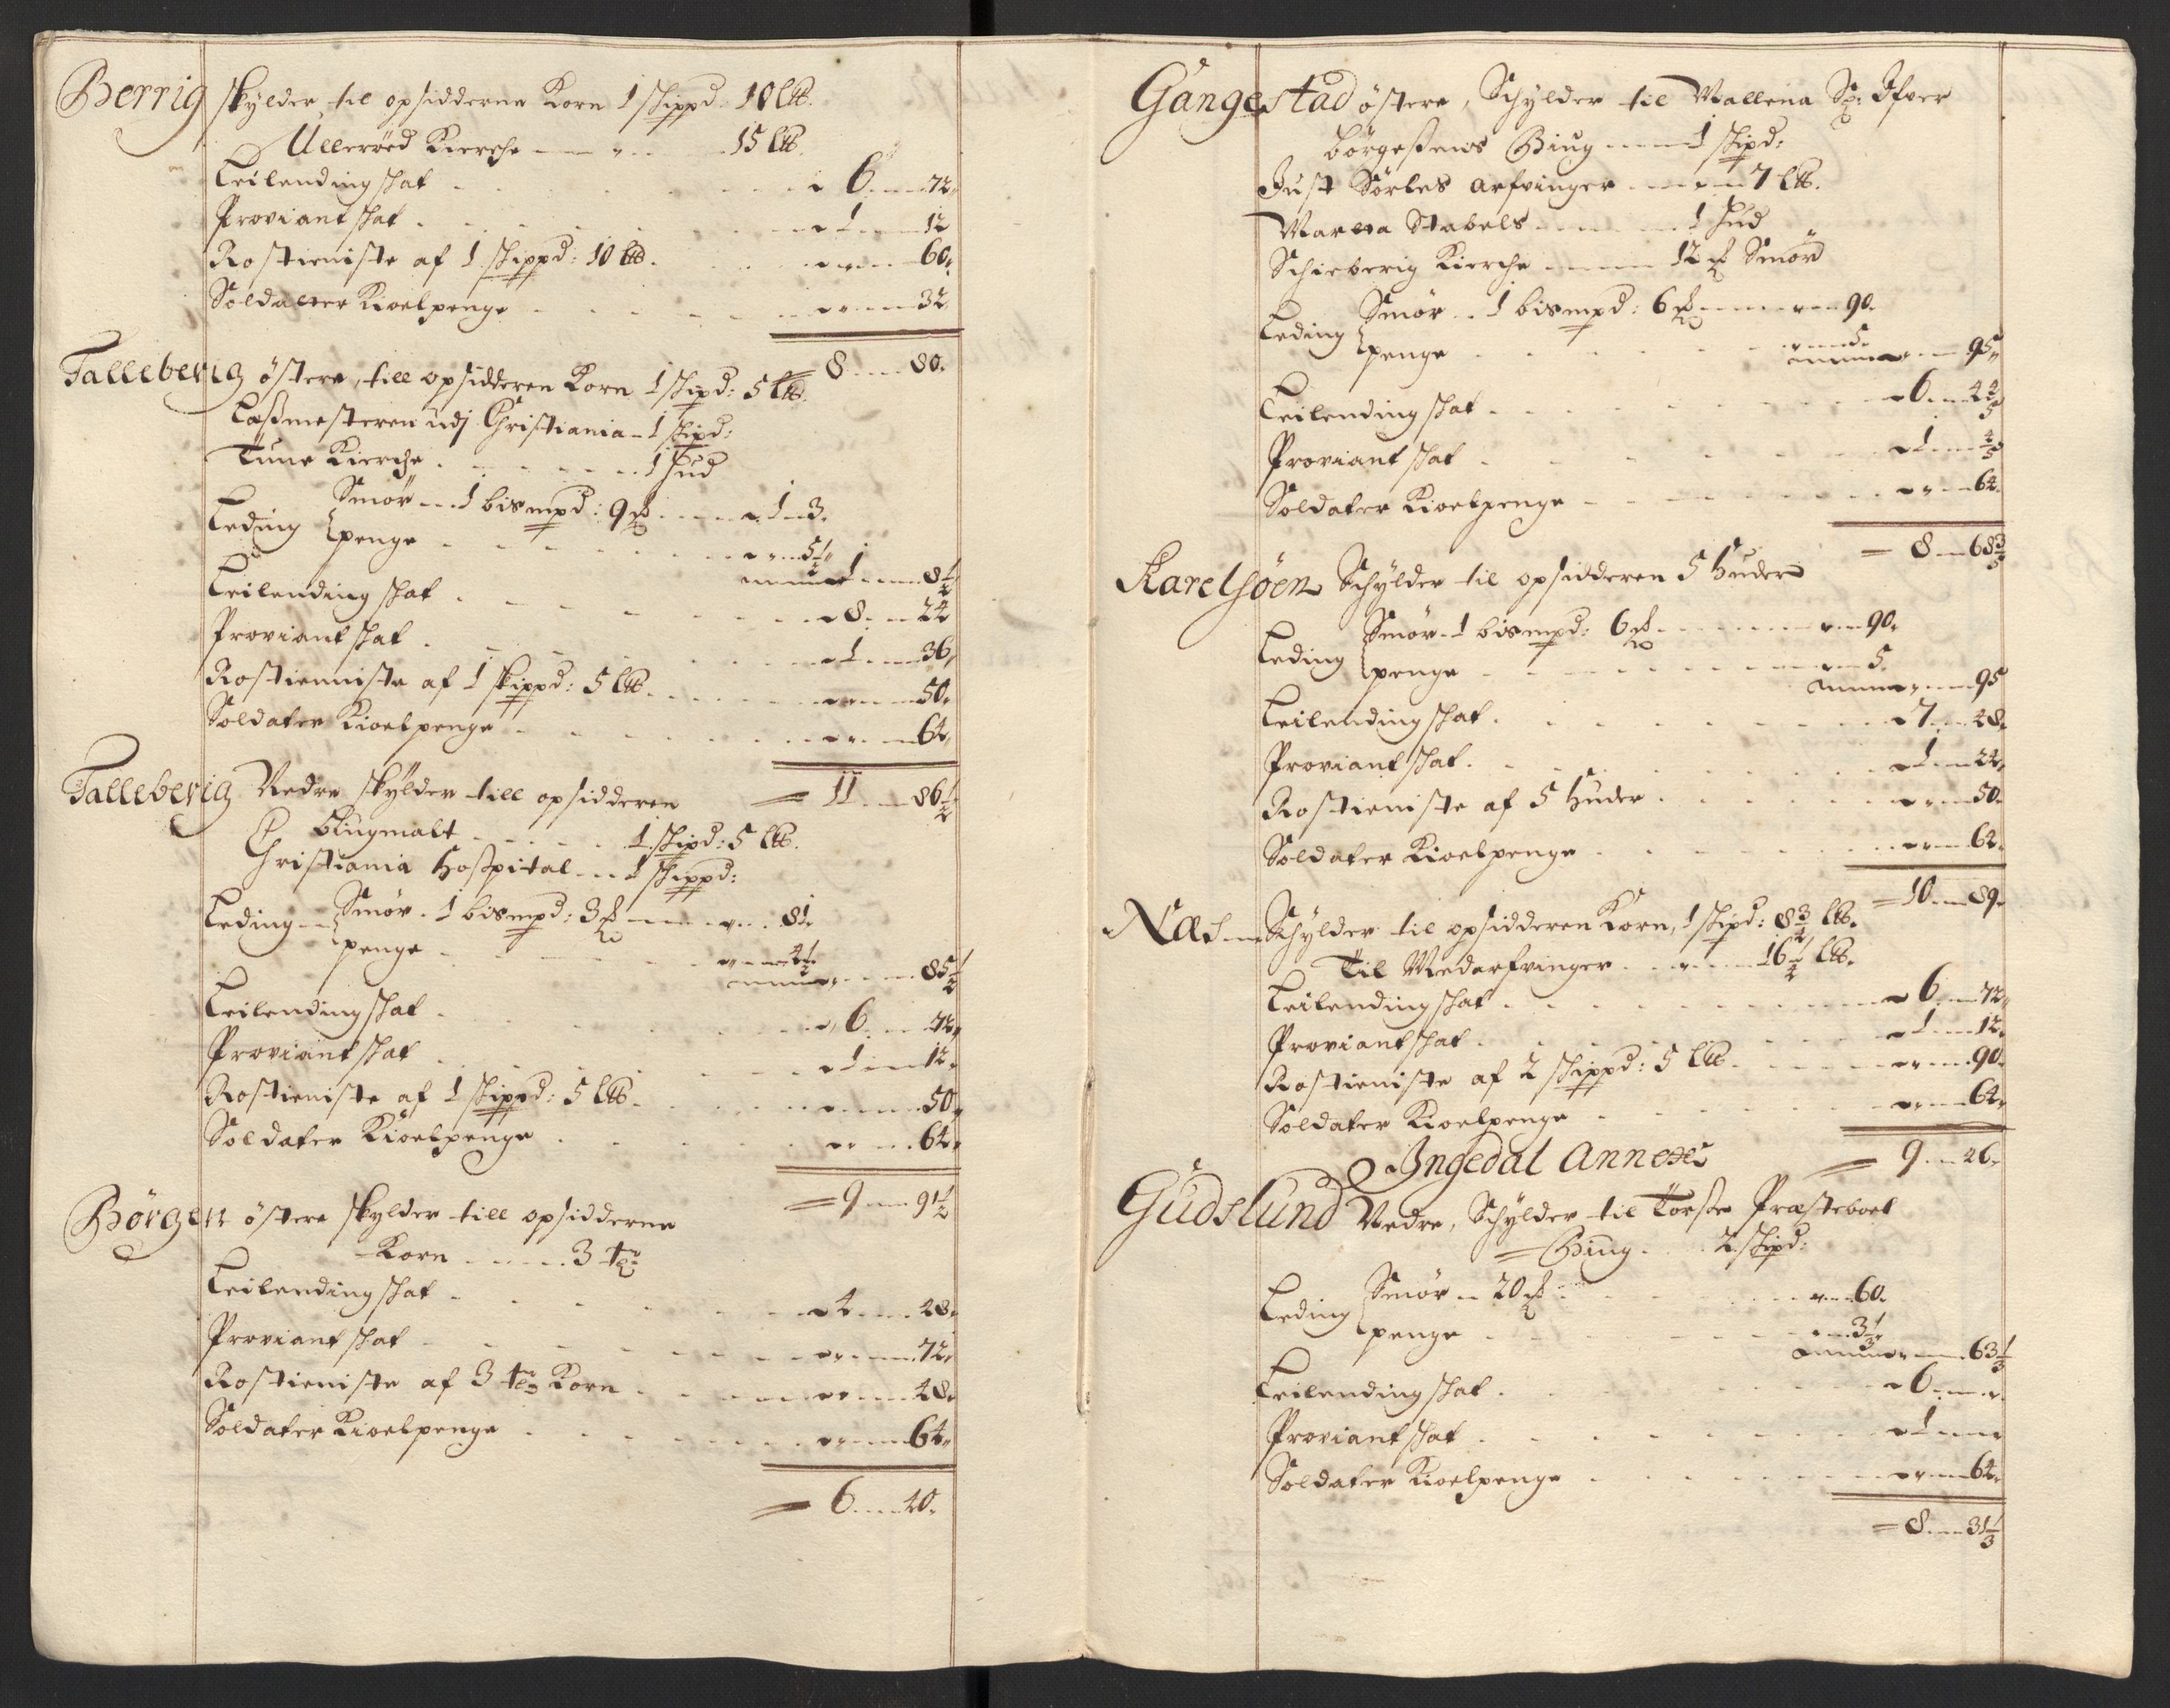 Berrig skylder til opsidderne Korn 1 skippd: 10 ltb.
Ullerøed Kierche - - - 15 ltb.
Leilending skat - - - 6 - - 72.
Proviant skat - - - 1 - - 12
Rostieniste af 1 skippd: 10 ltb. - - - 60.
Soldatter Kioelpenge - - - 32.
8 - - 80.
Talleberig østere, till opsidderen Korn 1 skipd: 5 ltb.
Laßmesteren udj Christiania - 1 skipd:
Tune Kierche - - - 1 Hud
Leding Smør - - 1 bismpd: 9 ℔ - - - 1 - 3.
penge - - - 5 1/2
1 - - 8 1/2
Leilending skat - - - 8 - - 24
Proviant skat - - - 1 - - 36
Rostienniste af 1 skippd: 5 ltb. - - - 50.
Soldater Kioelpenge - - - 64.
= 11 - - 86 1/2
Talleberig Nedre skylder till opsidderen
blugmalt - - - 1 skipd: 5 ltb.
Christiania Hospital - - 1 skippd:
Leding Smør - 1 bismpd: 3 ℔ - - - 81.
penge - - - 4 1/2
85 1/2
Leilending skat - - - 6 - - 72.
Proviant skat - - - 1 - - 12.
Rostieniste af 1 skippd: 5 ltb. - - - 50.
Soldater Kioelpenge - - - 64.
= 9 - - 91 1/2
Børgen østere skylder till opsidderne
Korn - - - 3 tr
Leilending skat - - - 4 - - 48.
Proviant skat - - - 72.
Rostieniste af 3 tr Korn - - - 48.
Soldater Kioelpenge - - - 64.
= 6 - - 40.
Gangestad østere, Schylder til Mallena Sr: Ifver
børgesens Biug - - - 1 skipd:
Just Sørbes arfvinger - - - 7 ltb.
Maren Stabels - - - 1 Hud
Schieberig Kierche - - - 12 ℔ Smør
Leding Smør - - 1 bismpd: 6 ℔ - - - 90.
penge - - - 5.
95.
Leilending skat - - - 6 - - 4 4/5
Proviant skat - - - 1 - - 4/5
Soldater Kioelpenge - - - 64.
= 8 - - 68 3/5
Karelsøen Schylder til opsidderen 5 Huder
Leding Smør - 1 bismpd: 6 ℔ - - - 90.
penge - - - 5.
95
Leilending skat - - - 7 - - 48.
Proviant skat - - - 1 - - 24.
Rostieniste af 5 Huder - - - 50.
Soldater Kioelpenge - - - 64.
= 10 - - 89.
Næs Schylder til opsidderen Korn, 1 skipd: 8 3/4 ltb.
Til Medarfvinger - - - 16 1/4 ltb.
Leilending skat - - - 6 - - 72.
Proviant skat - - - 1 - - 12.
Rostieniste af 2 skippd: 5 ltb - - - 90.
Soldater Kioelpenge - - - 64.
= 9 - - 46.
Ingedal Annex
Gudslund Nedre, Schylder til Torsøe Præsteboel
Biug - - 2 skipd:
Leding Smør - - 20 ℔ - - - 60.
penge - - - 3 1/3
63 1/3
Leilending skat - - - 6 - -
Proviant skat - - - 1 - -
Soldater Kioelpenge - - - 64.
= 8 - - 31 1/3